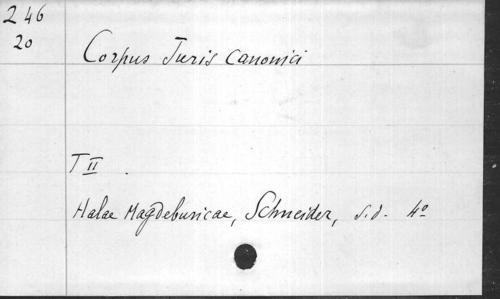 246
20
Corpus Juris canonici
T II.
Halae Magdeburicae, Schneider, s.d. 4º